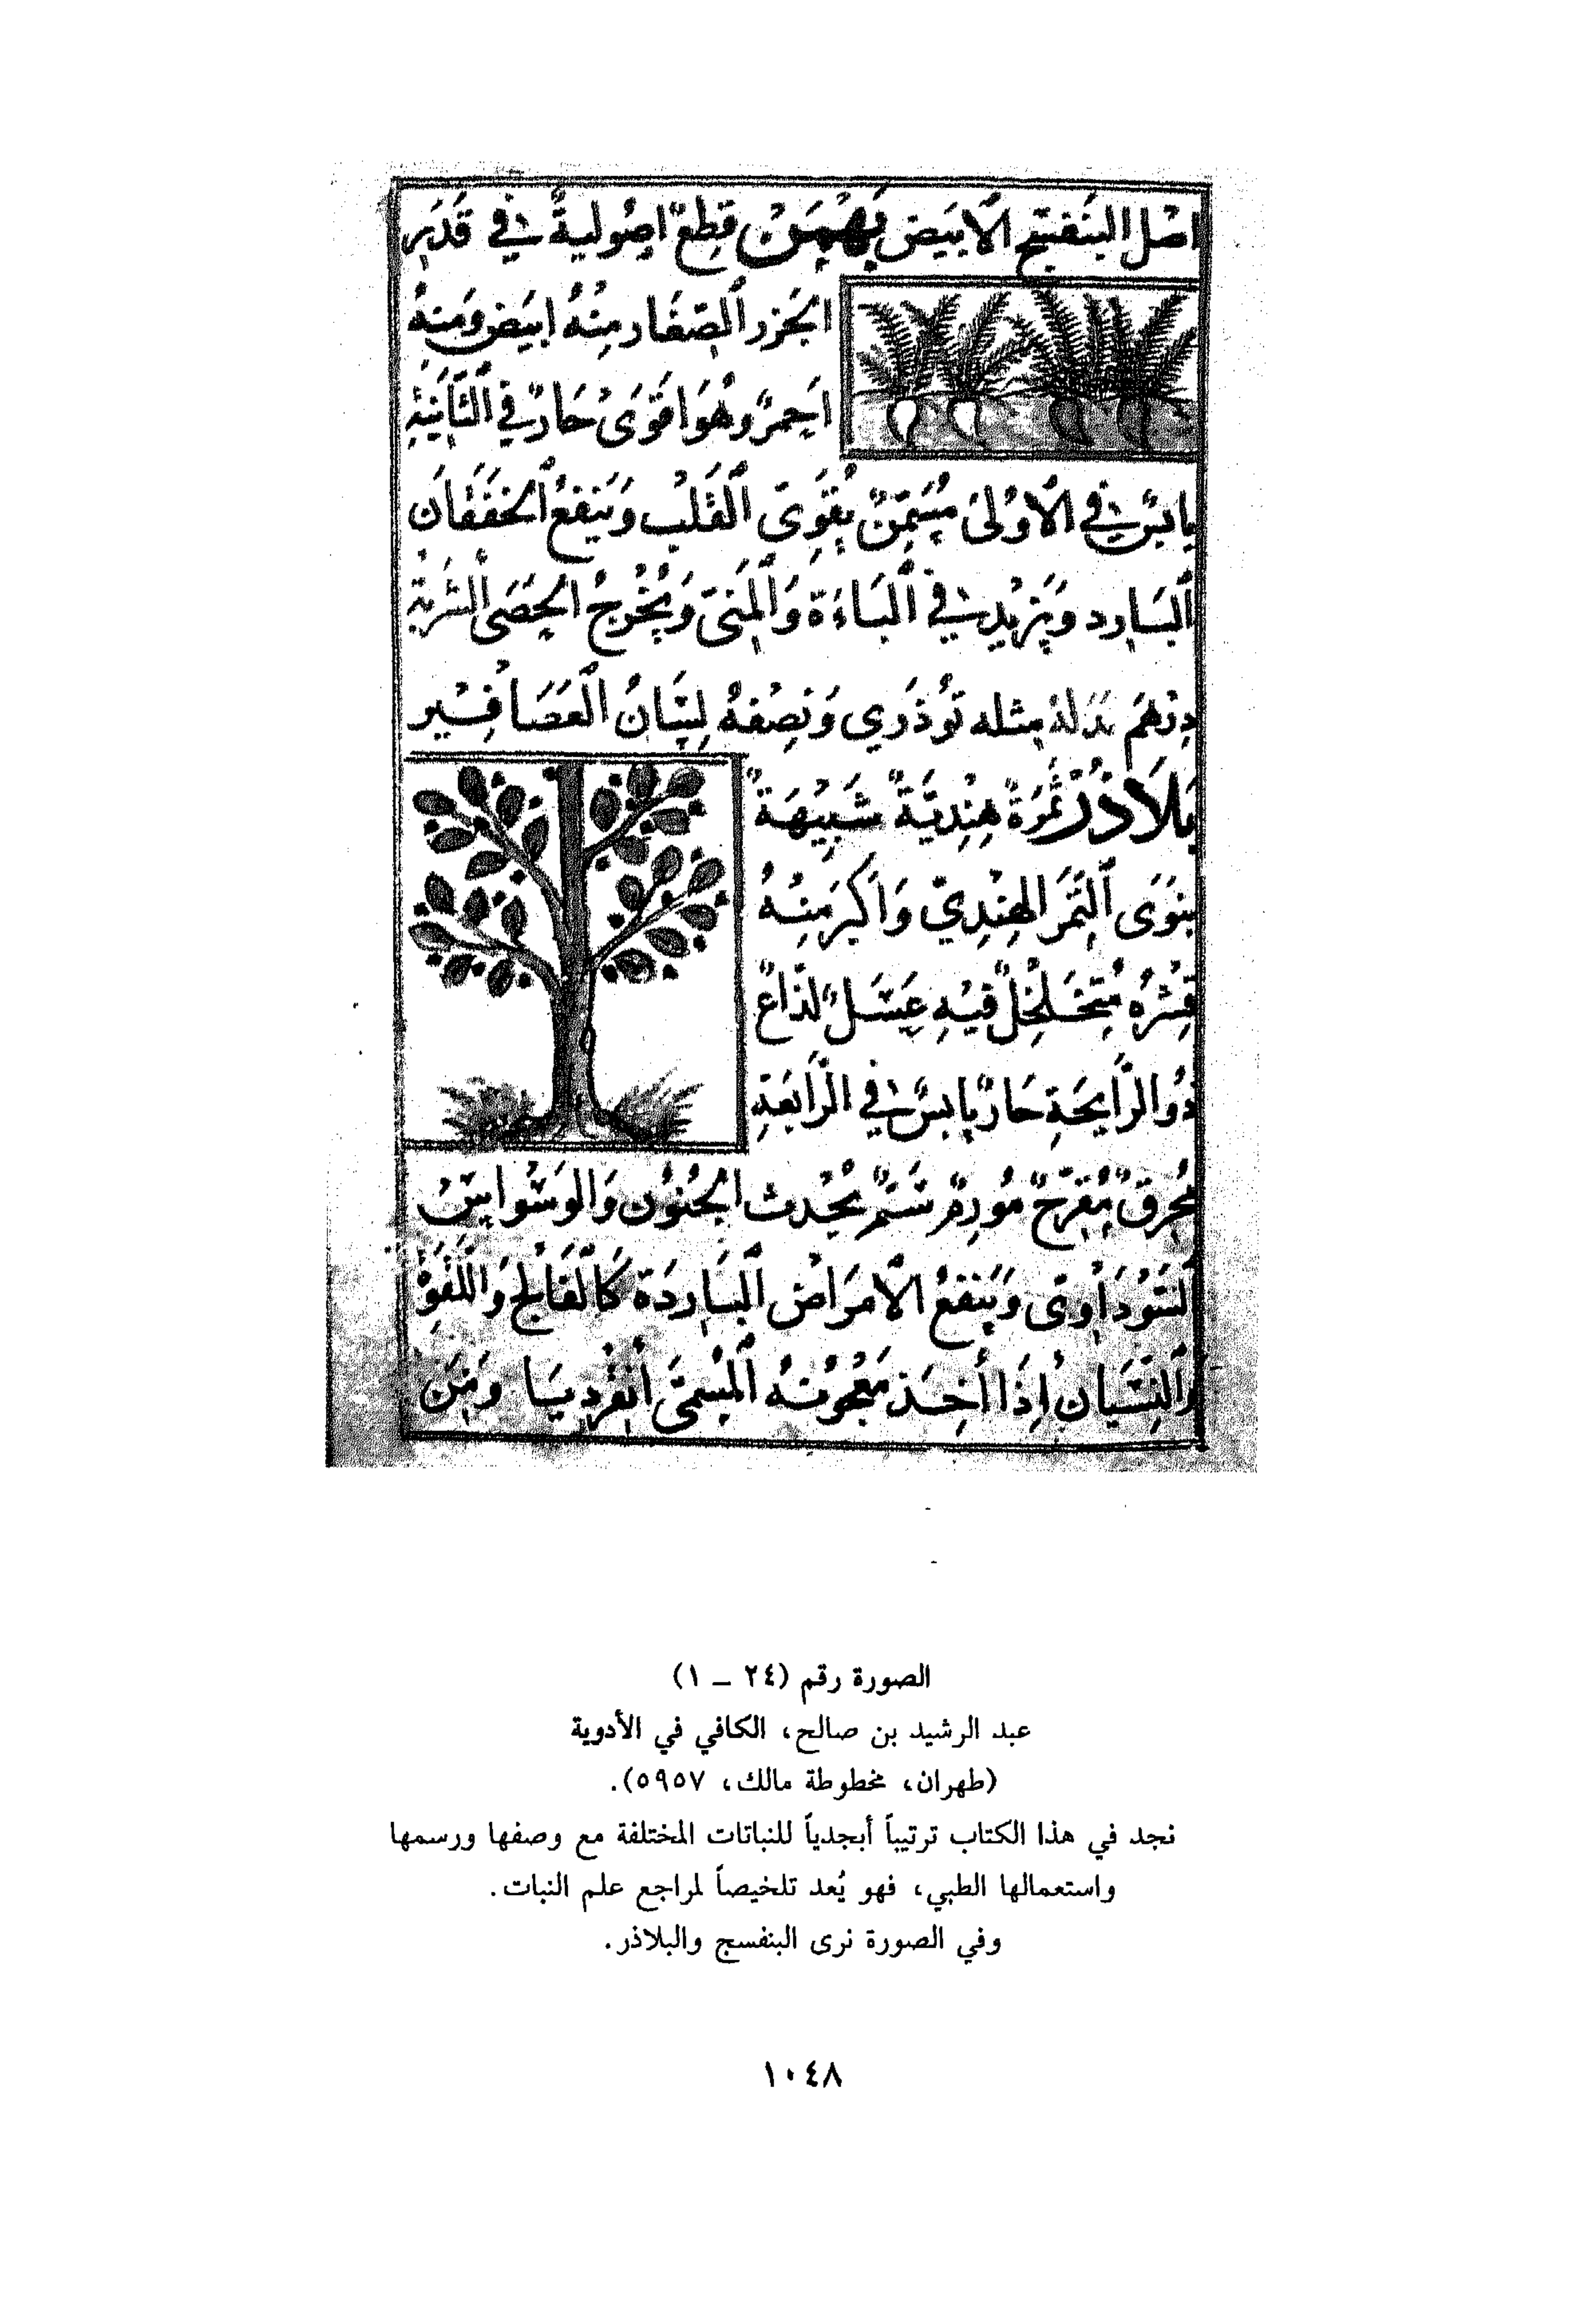 اصل البنفسج الابيض بَهْمَنْ قِطَعٌ اصُوليةٌ في قَدَرِ
الجَزر الصِّغَار مِنْهُ ابيَض وَمِنهُ
اَحمرٌ وهُوَ اقوَى حَارٌ في الثَّانِيَةِ
يابسٌ في الاُوْلىَ مُسَمِّنٌ يُقَوِى القَلبْ وَيَنفعُ الخَفَقَان
البَارِد وَيَزِيدُ في البَاءَة وَالمَنىّ وَيُخْرِجُ الحَصَى الشربَةُ
دِرْهَمَ بَدَلهُ مِثله تَوُذَرِي وَنِصْفهُ لِسَانُ العَصَافِيْر
بَلاَذُرْ ثَمَرَةٌ هِنْدِيَّةٌ شَبِيْهَةٌ
بِنَوَى التَّمَر الهِنْدِيّ وَاَكبَر مِنْهُ
قِشْرُهُ مُتَخَلْخِلٌ فِيْهِ عَسَلٌ لَذَّاعٌ
ذُو الرَّايحَةِ حَارٌ يابسٌ في الرَّابعَةِ
مُحرِقٌ مُقَرِّحٌ مُورِمٌ سَمٌّ يُحْدث الجُنوُن وَالوَسْوَاسْ
السَّوْدَاوىَ وَيَنفعُ الاَمرَاضْ البَارِدَة كَالفَالج وَاللَّقوَة
وَالنِّسْيَان اِذَا أُخِذ مَعْجُونهُ المُسَمَّى أَنقَردِيَا وَمَن
الصورة رقم (٢٤ – ١)
عبد الرشيد بن صالح، الكافي في الأدوية
(طهران، مخطوطة مالك، ٥٩٥٧).
نجد في هذا الكتاب ترتيباً أبجدياً للنباتات المختلفة مع وصفها ورسمها
واستعمالها الطبي، فهو يُعد تلخيصاً لمراجع علم النبات.
وفي الصورة نرى البنفسج والبلاذر.
١٠٤٨